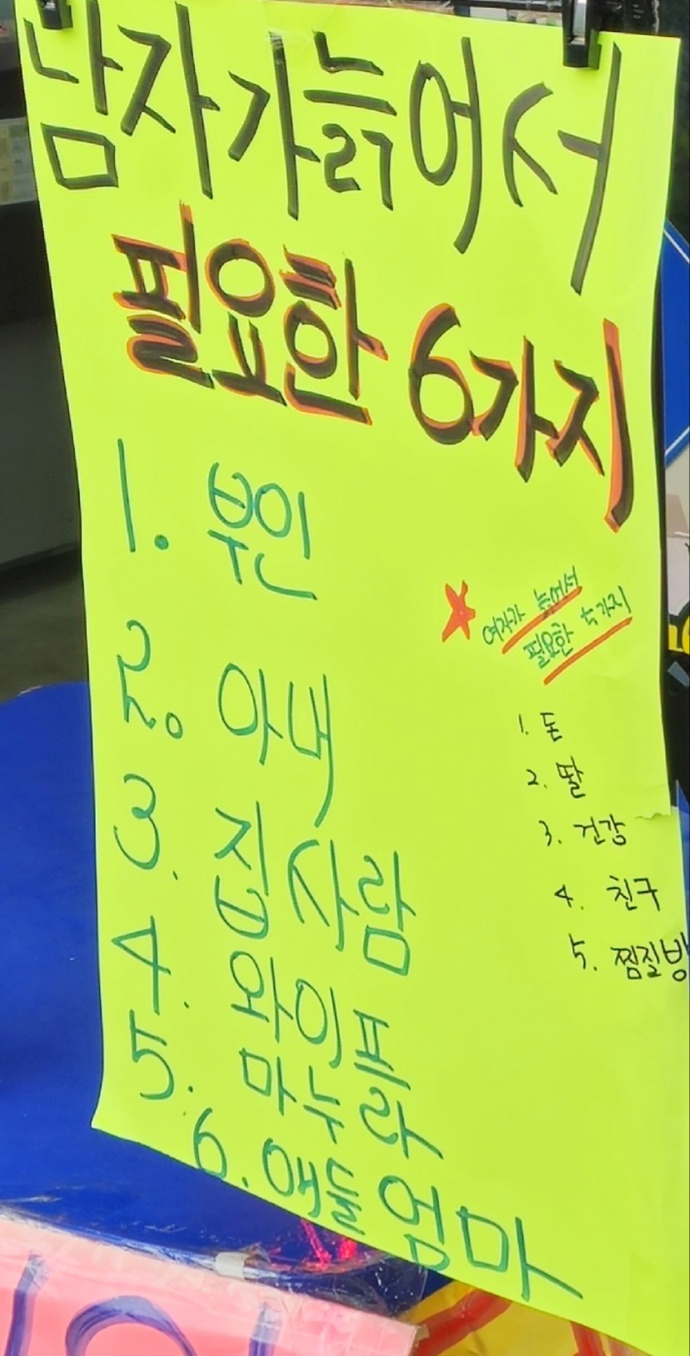 남자가늙어서
필요한 6가지
1. 부인
2. 아내
3. 집사람
4. 와이프
5. 마누라
6. 애들 엄마
여자가 늙어서
필요한 5가지
1. 돈
2. 딸
3. 건강
4. 친구
5. 찜질방